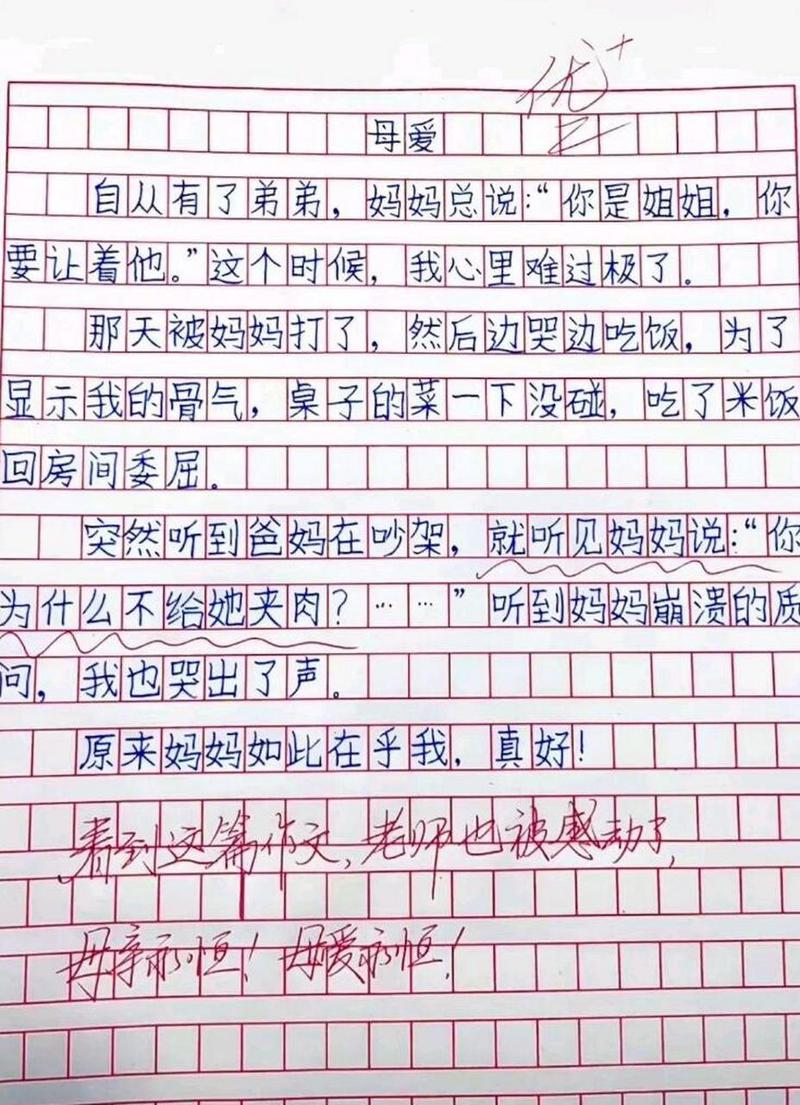 优+
母爱
自从有了弟弟，妈妈总说：“你是姐姐，你
要让着他。”这个时候，我心里难过极了。
那天被妈妈打了，然后边哭边吃饭，为了
显示我的骨气，桌子的菜一下没碰，吃了米饭
回房间委屈。
突然听到爸妈在吵架，就听见妈妈说：“你
为什么不给她夹肉？……”听到妈妈崩溃的质
问，我也哭出了声。
原来妈妈如此在乎我，真好！
看到这篇作文，老师也被感动了，
母亲永恒！母爱永恒！